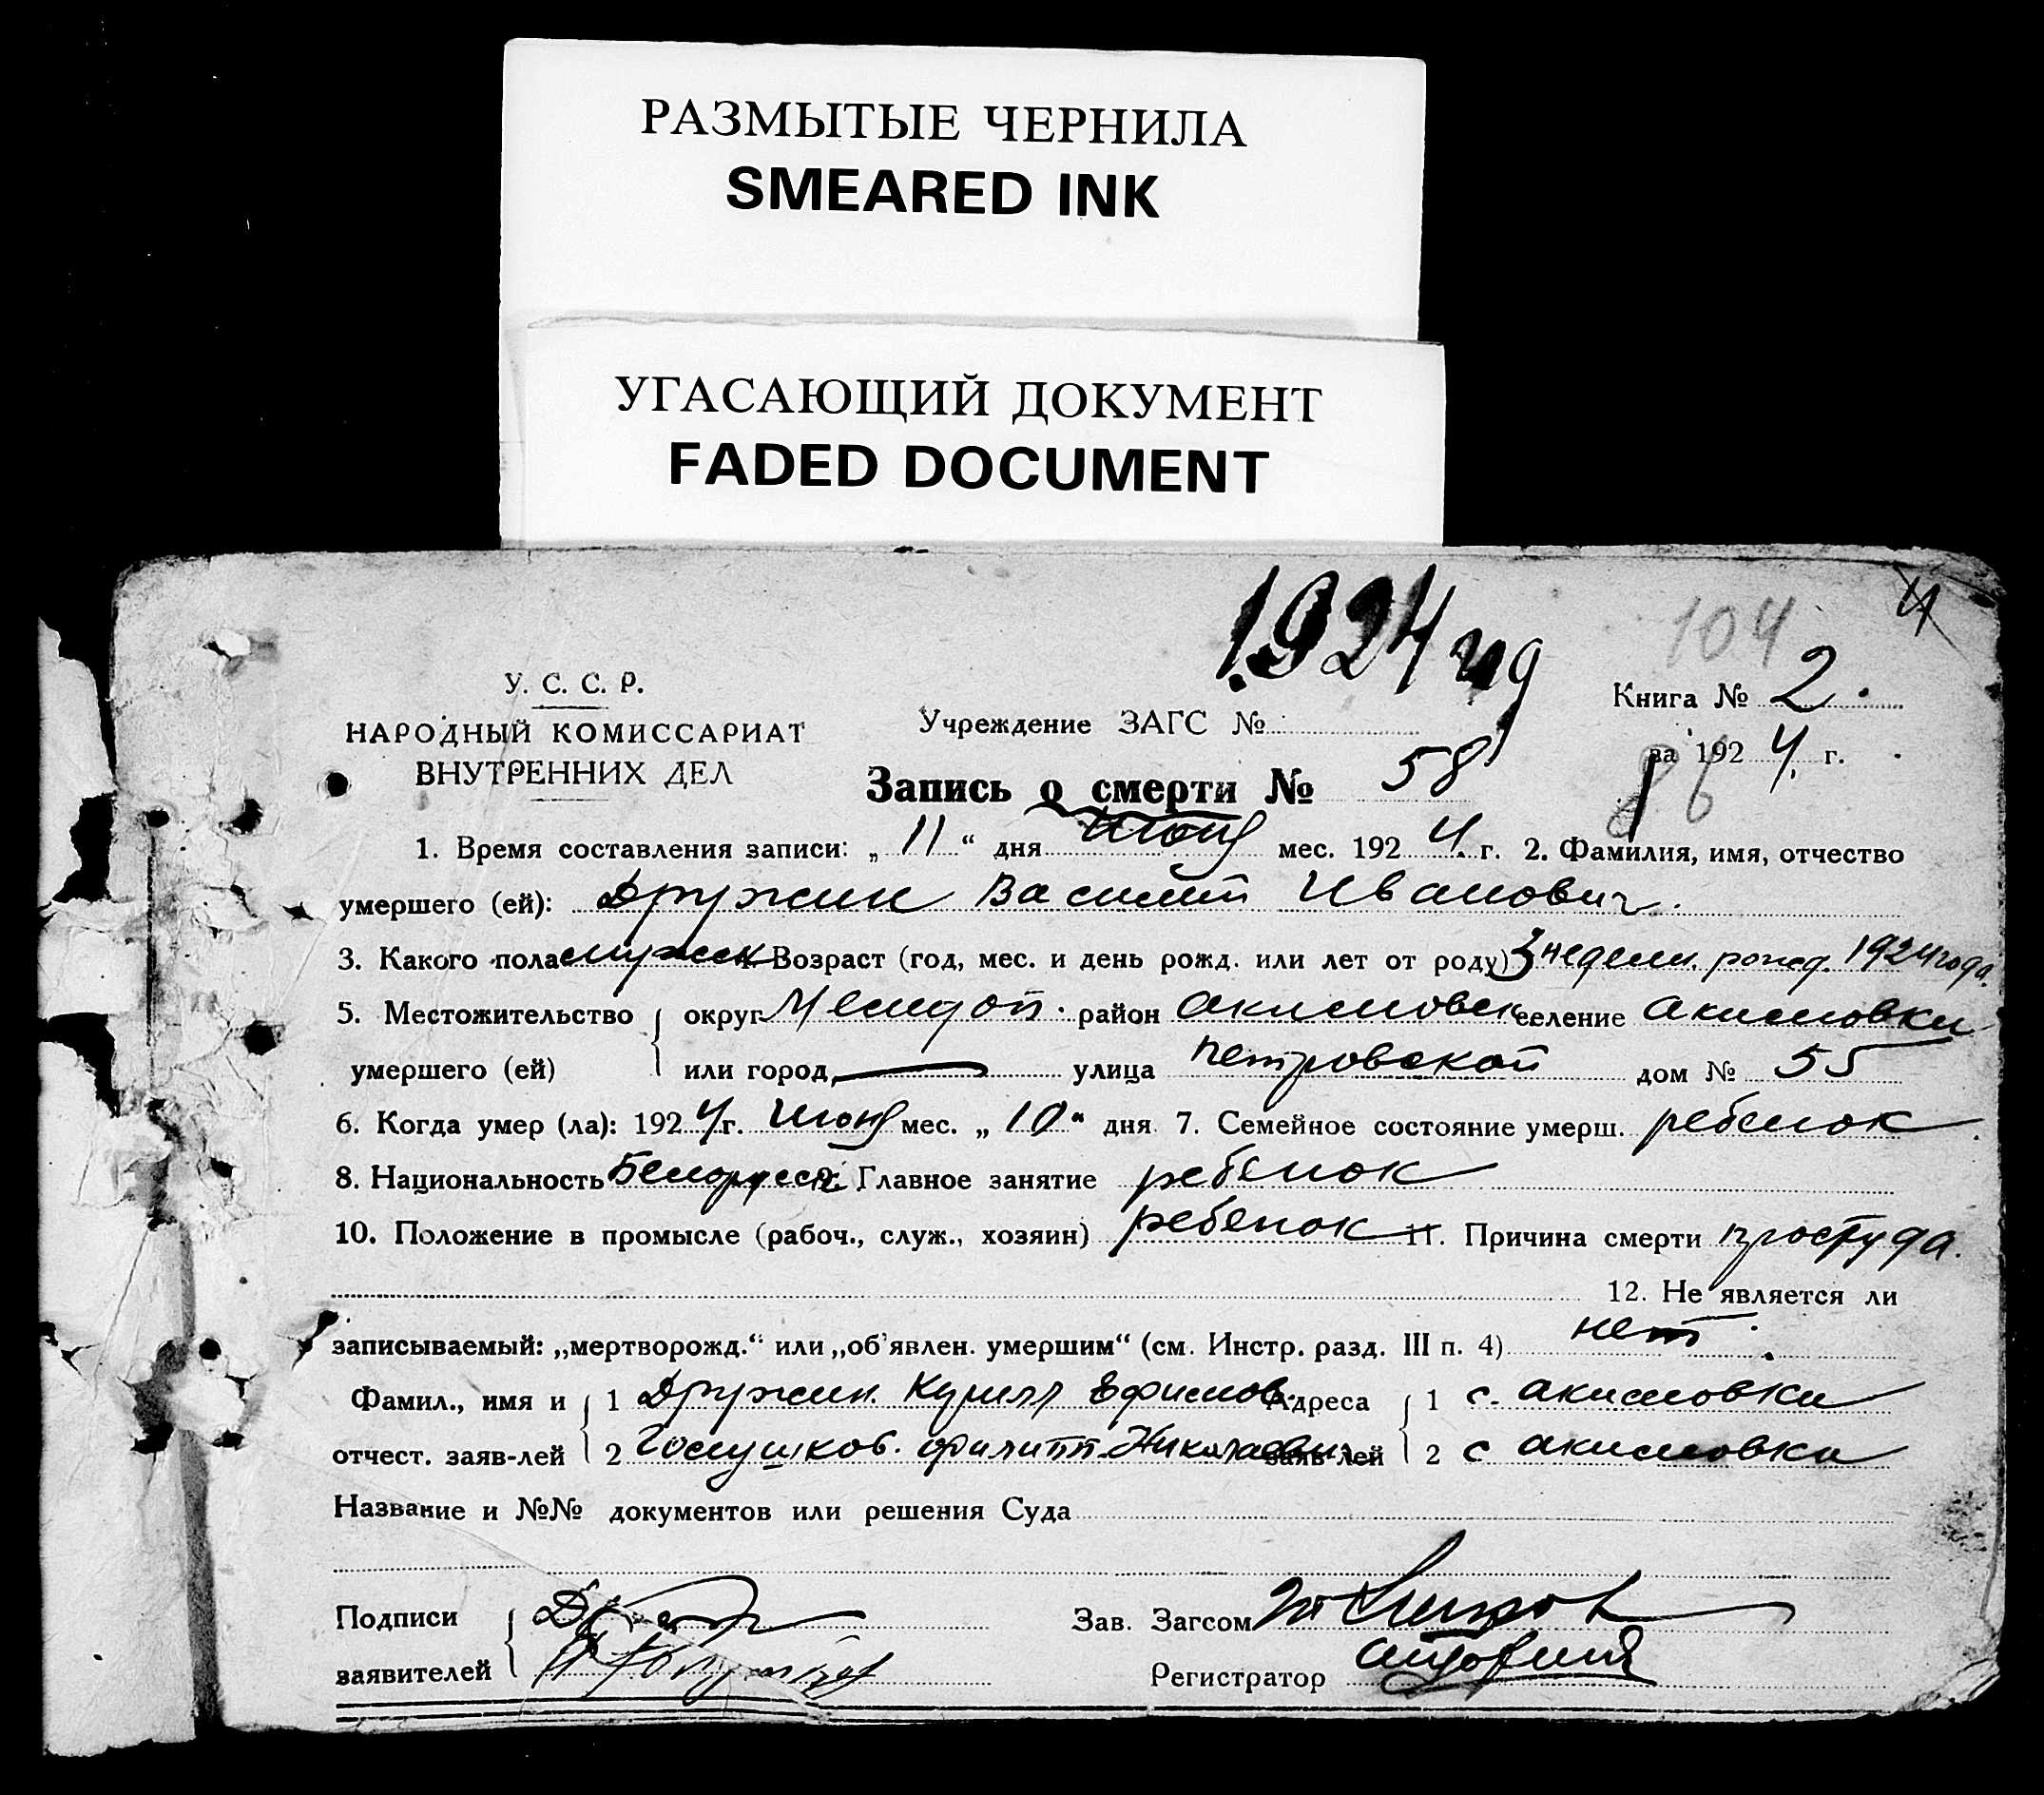 РАЗМЫТЫЕ ЧЕРНИЛА
SMEARED INK
УГАСАЮЩИЙ ДОКУМЕНТ
FADED DOCUMENT
1924 год
104
У. С. С. Р.
НАРОДНЫЙ КОМИССАРИАТ
ВНУТРЕННИХ ДЕЛ
Учреждение ЗАГС №
Книга № 2.
за 1924 г.
86
Запись о смерти № 58
1. Время составления записи: „11“ дня июня мес. 1924 г. 2. Фамилия, имя, отчество
умершего (ей): Дружин Василий Иванович.
3. Какого пола мужск Возраст (год, мес. и день рожд. или лет от роду) 3 недели. рожд. 1924 года.
5. Местожительство округ Мелитоп. район Акимовск селение Акимовки
умершего (ей) или город — улица Петровской дом № 55
6. Когда умер (ла): 1924 г. июня мес. „10“ дня 7. Семейное состояние умерш. ребенок
8. Национальность Белорусск 9. Главное занятие ребенок
10. Положение в промысле (рабоч., служ., хозяин) ребенок 11. Причина смерти простуда.
12. Не является ли
записываемый: „мертворожд.“ или „об'явлен. умершим“ (см. Инстр. разд. III п. 4) нет.
Фамил., имя и 1 Дружин. Кирилл Ефимов. Адреса 1 с. Акимовки
отчест. заяв-лей 2 Филипп Николаевич заяв-лей 2 с Акимовки
Название и №№ документов или решения Суда
Подписи Зав. Загсом
заявителей Регистратор